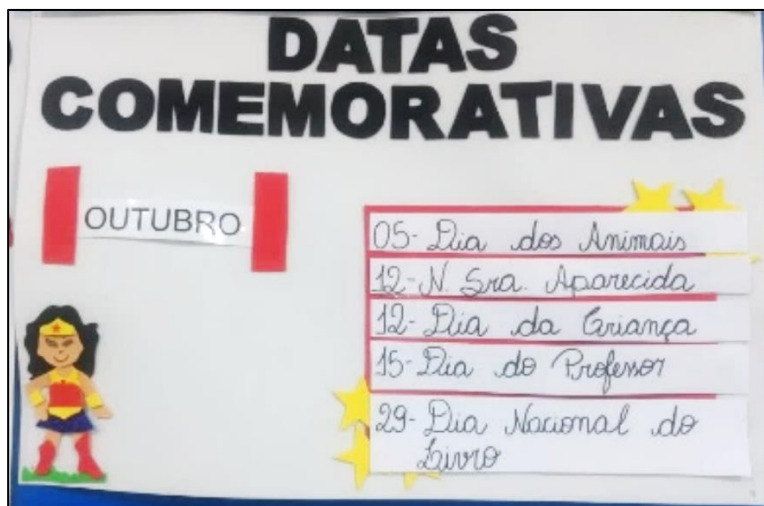 DATAS
COMEMORATIVAS
OUTUBRO
05- Dia dos Animais
12- N. Sra. Aparecida
12- Dia da Criança
15- Dia do Professor
29- Dia Nacional do
Livro